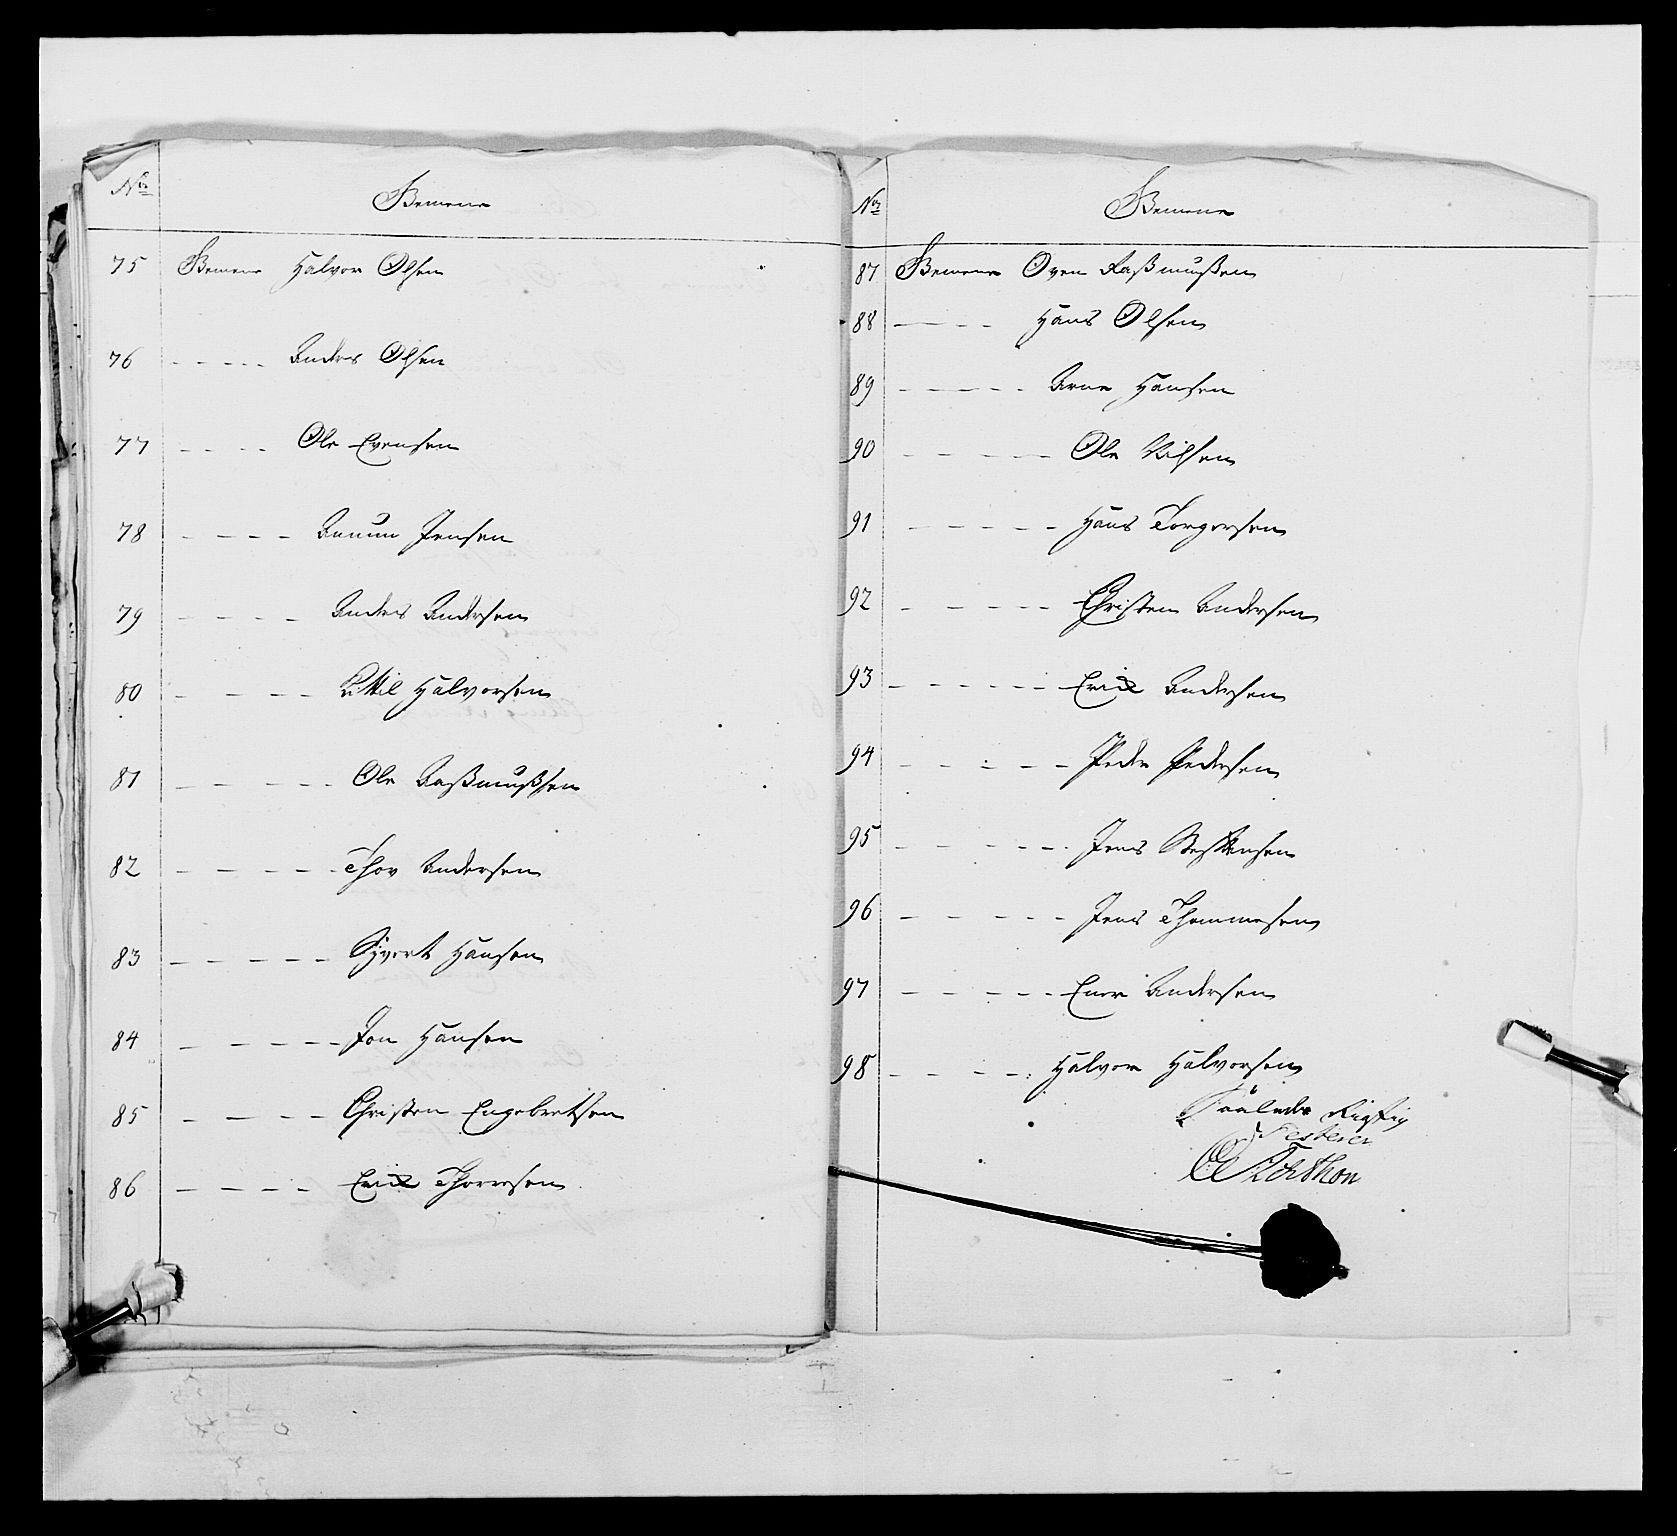 No
Gemene
75 Gemene Halvor Olsen
76 - - - - Anders Olsen
77 - - - - Ole Evensen
78 - - - - Jensen
79 - - - - Anders Andersen
80 - - - - Kittil Halvorsen
81 - - - - - Ole Raßmußsen
82 - - - - - Thor Andersen
83 - - - - - Syvert Hansen
84 - - - - - Jon Hansen
85 - - - - Christen Engebretsen
86 - - - - Erich Thoresen
No
Gemene
87 Gemene Even Raßmußen
88 - - - Hans Olsen
89 - - - - - Arne Hansen
90 - - - - - Ole Nilsen
91 - - - - - Hans Torgersen
92 - - - - Christen Andersen
93 - - - - - - Erich Andersen
94 - - - - - Peder Pedersen
95 - - - - - Jens
96 - - - - - Jens Thommesen
97 - - - - - Ener Andersen
98 - - - - Halvor Halvorsen
Saaledes Rigtig
Testerer